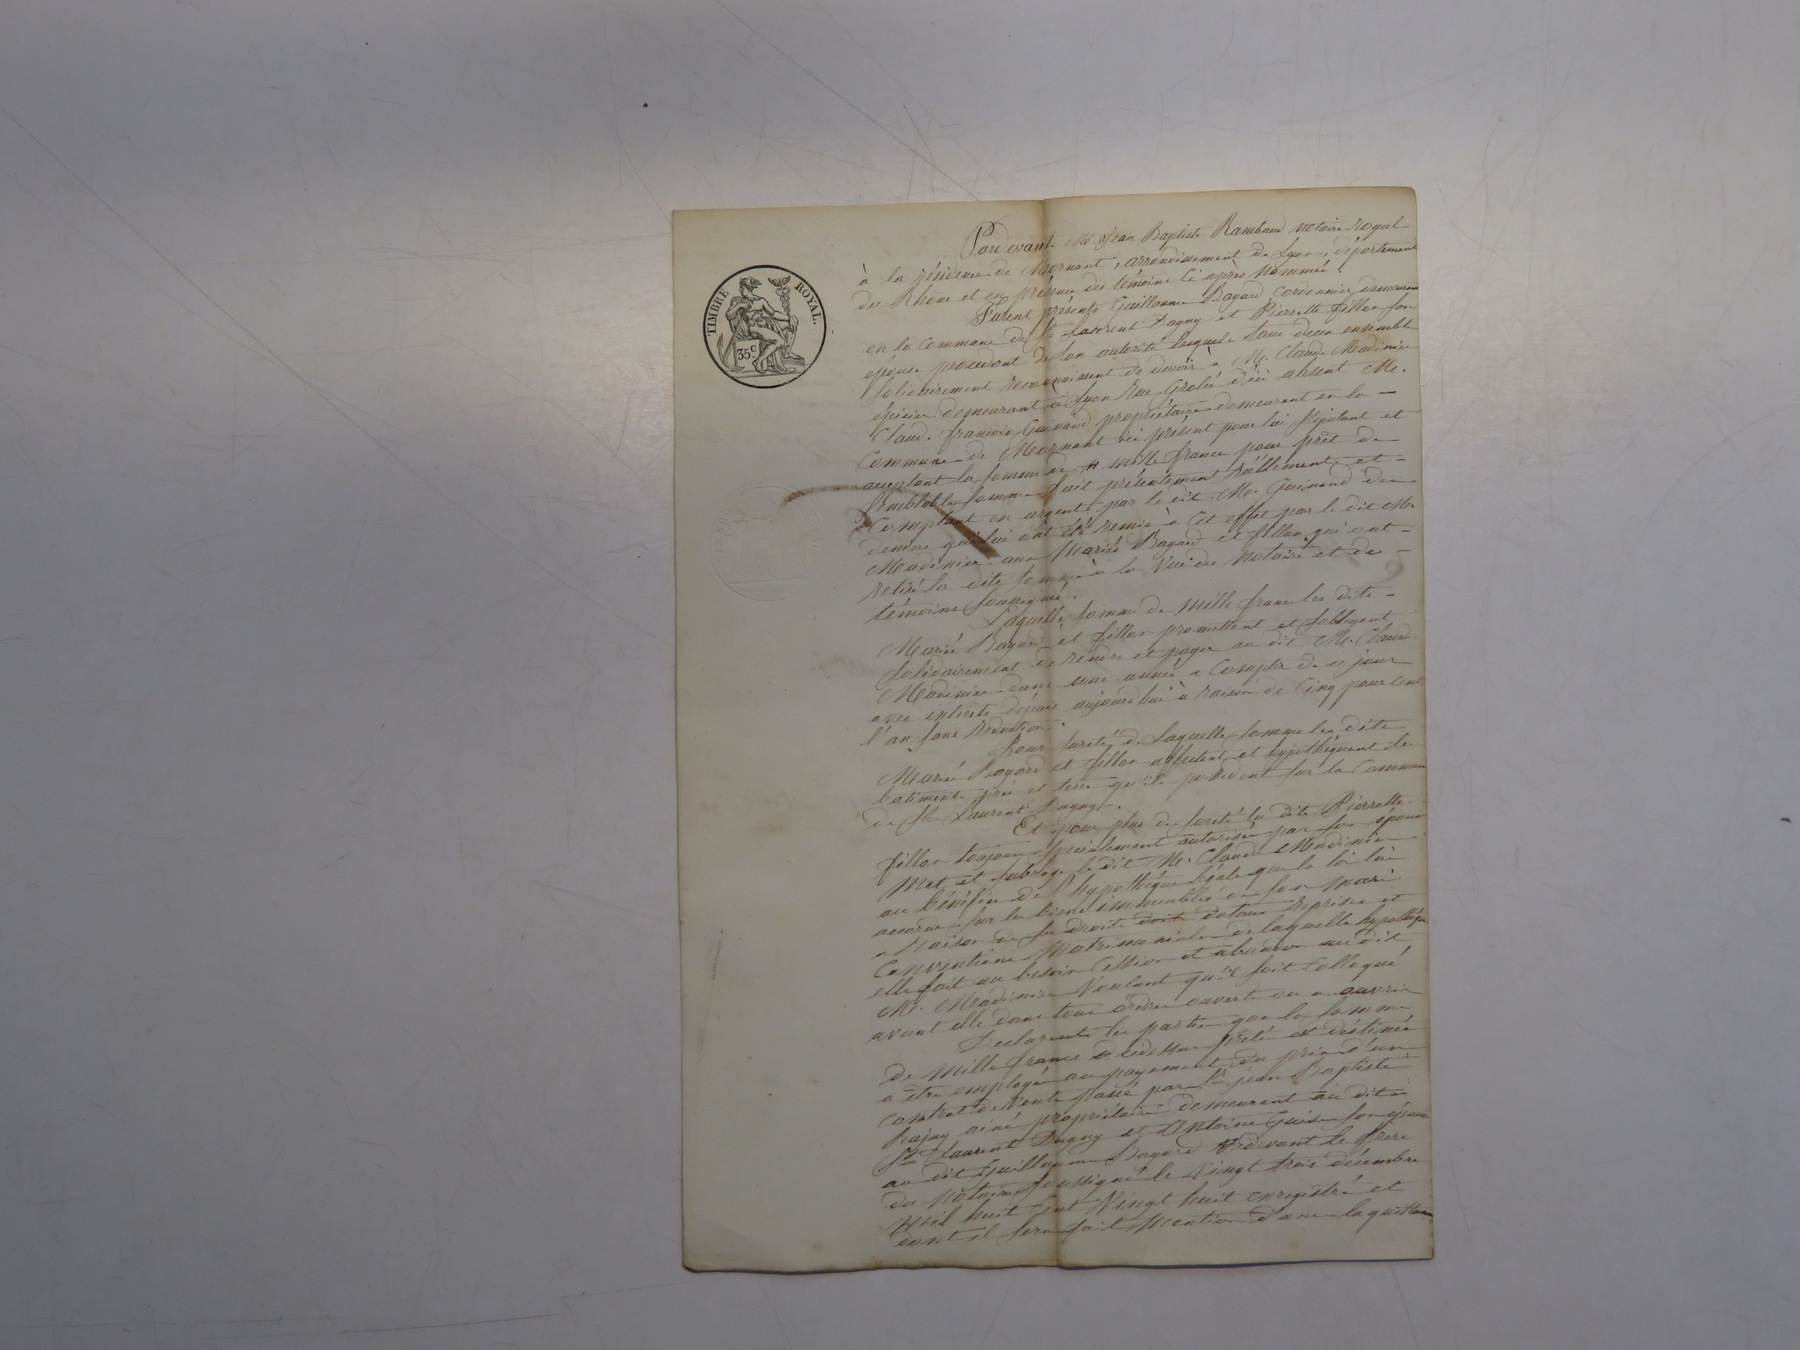 TIMBRE ROYAL.
35.c
Pardevant Me jean Baptiste Rambaud notaire royal
à la résidence de Mornant, arrondissement de Lyon, département
du Rhône et en présence des témoins ci après nommés.
Furent présents Guillaume Bayard cordonnier demeurant
en la commune de St Laurent Dagny et Pierrette fillon son
épouse procedant de son autorité lesquels tous deux ensemble
solidairement reconnaissent de devoir à M. Claude Madinier
épicier demeurant à Lyon Rue Grolée d'ici absent Me.
Claude françois Guinand propriétaire demeurant en la
Commune de Mornant ici présent pour lui stipulant et
acceptant la somme de mille francs pour prêt de
semblable somme fait présentement réellement et
Comptant en argent par le dit M. Guinand des
deniers qui lui ont été remis à cet effet par le dit M.
Madinier aux Mariés Bayard et fillon, qui ont
retiré la dite somme à la Vue du Notaire et des
témoins soussignés.
Laquelle somme de Mille francs les dits
Mariés Bayard et fillon promettent et s'obligent
solidairement de rendre et payer au dit M. Claude
Madinier dans une année a compter de ce jour
avec intérêts depuis aujourd'hui à raison de cinq pour cent
l'an sans Réduction.
Pour sureté de laquelle somme les dits
Mariés Bayard et fillon affectent et hypothéquent les
batiments prés et terre qu'ils possedent sur la Commune
de St Laurent Dagny.
Et pour plus de sureté la dite Pierrette
fillon toujours spécialement autorisée par son époux
Met et subroge le dit M. Claude Madinier
au bénéfice de l'hypothéque légale que la loi lui
accorde sur les biens immeubles de son mari
a Raison de ses droits dotaux Reprises et
Conventions Matrimoniales de laquelle hypothéque
elle fait au besoin Cession et abandon au dit
M. Madinier Voulant qu'il soit Colloqué
avant elle dans tous ordres ouverts ou a ouvrir
Declarent les parties que la somme
de Mille francs cidessus prêté est déstinée
a être employé au payement du prix d'un
contrat de Vente passé par St jean Baptiste
ainé propriétaire demeurant au dit
St Laurent Dagny et Antoine son épouse
au dit Guillaume Bayard devant le frere
du Notaire soussigné le Vingt trois décembre
Mil huit cent Vingt huit enregistré et
dont il sera fait Mention dans la quittance